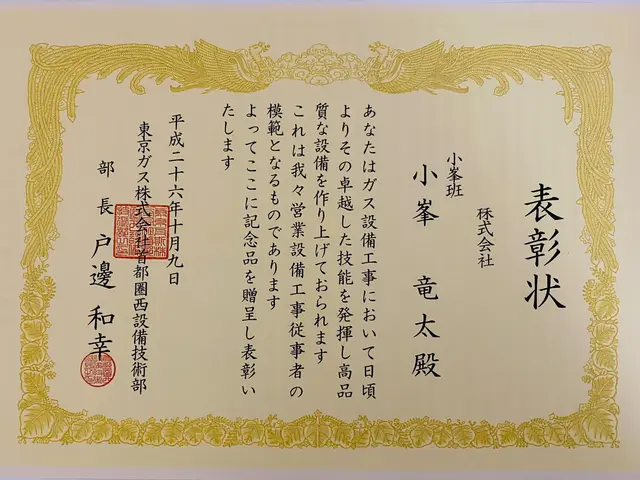 表彰状
株式会社
小峯班
小峯 竜太殿
あなたはガス設備工事において日頃
よりその卓越した技能を発揮し高品
質な設備を作り上げておられます
これは我々営業設備工事従事者の
模範となるものであります
よってここに記念品を贈呈し表彰い
たします
平成二十六年十月九日
東京ガス株式会社首都圏西設備技術部
部長 戸邊 和幸